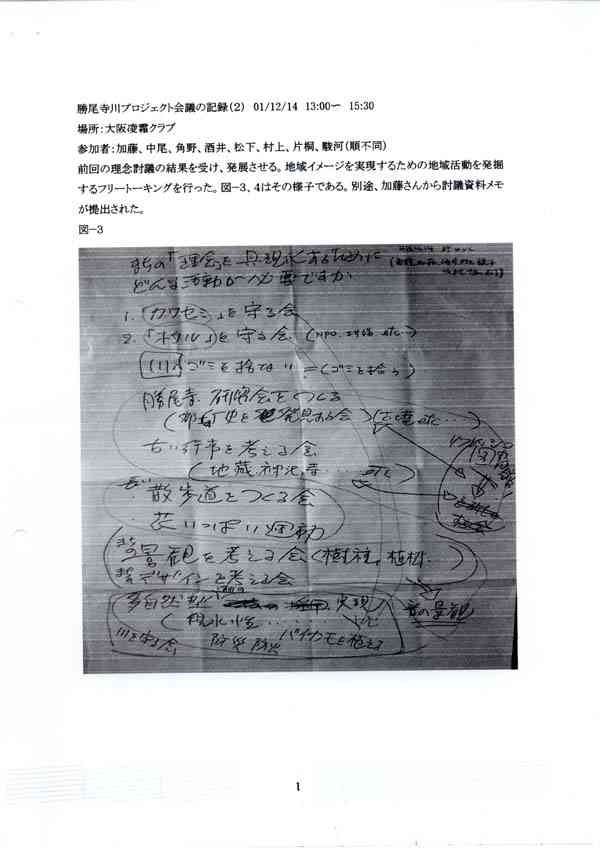 勝尾寺川プロジェクト会議の記録(2) 01/12/14 13:00ー 15:30
場所：大阪凌霜クラブ
参加者：加藤、中尾、角野、酒井、松下、村上、片桐、駿河(順不同)
前回の理念討議の結果を受け、発展させる。地域イメージを実現するための地域活動を発掘
するフリートーキングを行った。図－3、4はその様子である。別途、加藤さんから討議資料メモ
が提出された。
図－3
まちの「理念」を具現化するために
どんな活動が必要ですか
1. 「カワセミ」を守る会
2. 「ホタル」を守る会 (NPO
川にゴミを捨てない=(ゴミを拾う)
勝尾寺 研究会をつくる
史を発見する会)
古い行事を考える会
(地蔵.神社.寺......etc)
散歩道をつくる会
花いっぱい運動
まちの景観を考える会(樹種,植樹...)
デザインを考える会
多自然型 実現
(親水性
川を守る会 防災防火 バイカモを植える
1